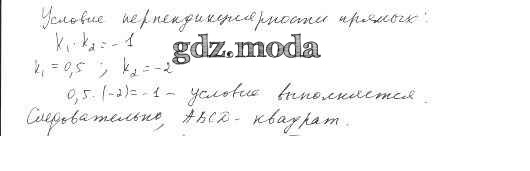 Условие перпендикулярности прямых:
k₁·k₂=-1
gdz.moda
k₁=0,5 ; k₂=-2
0,5·(-2)=-1 - условие выполняется.
Следовательно, ABCD-квадрат.